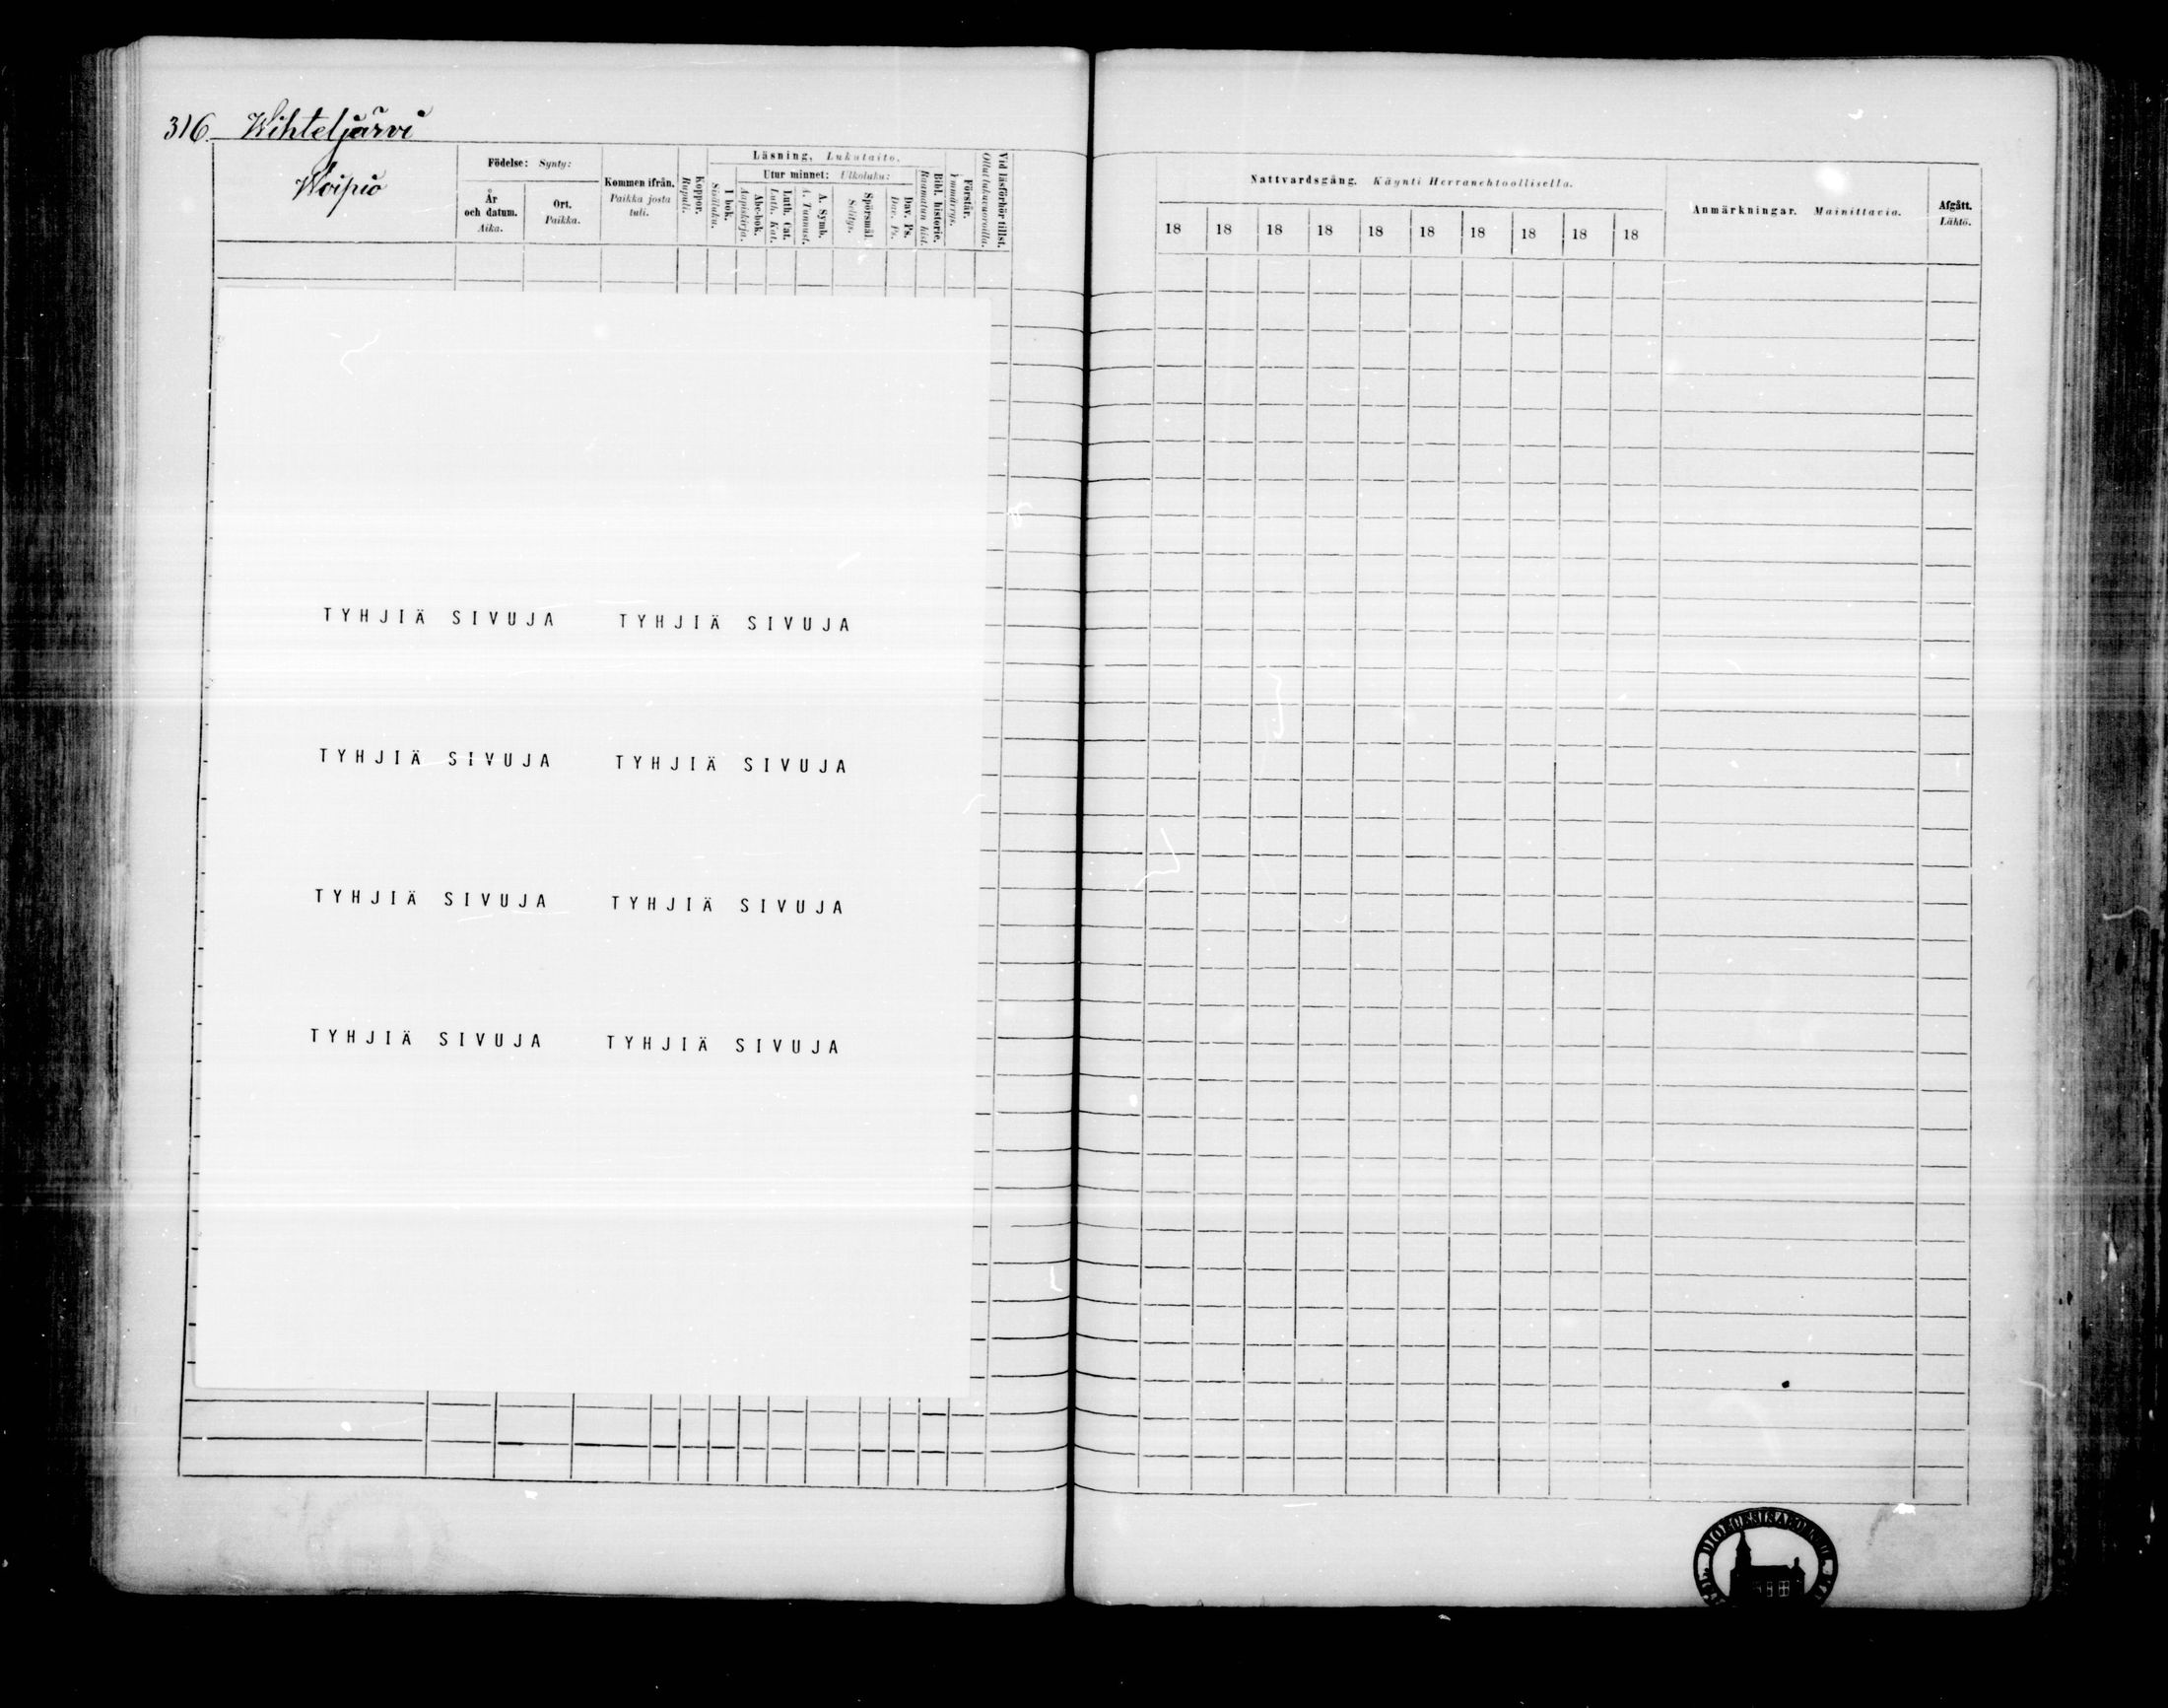 316. Wihteljärvi
Woipio
Födelse: Synty:
År och datum. Aika.
Ort. Paikka.
Kommen ifrån. Paikka josta tuli.
Koppor. Rupuli.
Läsning, Lukutaito,
I bok. Sisäluku.
Utur minnet: Ulkoluku:
Abc-bok. Aapiskirja.
Luth. Cat. Luth. Kat.
A. Symb. A. Tunnust.
Spörsmål. Selitys.
Dav. Ps. Dav. Ps.
Bibl. historie. Raamatun hist.
Förstår. Ymmärrys.
Vid läsförhör tillst. Ollut lukuvuoroilla.
Nattvardsgång. Käynti Herranehtoollisella.
18 18 18 18 18 18 18 18 18 18
Anmärkningar. Mainittavia.
Afgått. Lähtö.
TYHJIÄ SIVUJA TYHJIÄ SIVUJA
TYHJIÄ SIVUJA TYHJIÄ SIVUJA
TYHJIÄ SIVUJA TYHJIÄ SIVUJA
TYHJIÄ SIVUJA TYHJIÄ SIVUJA